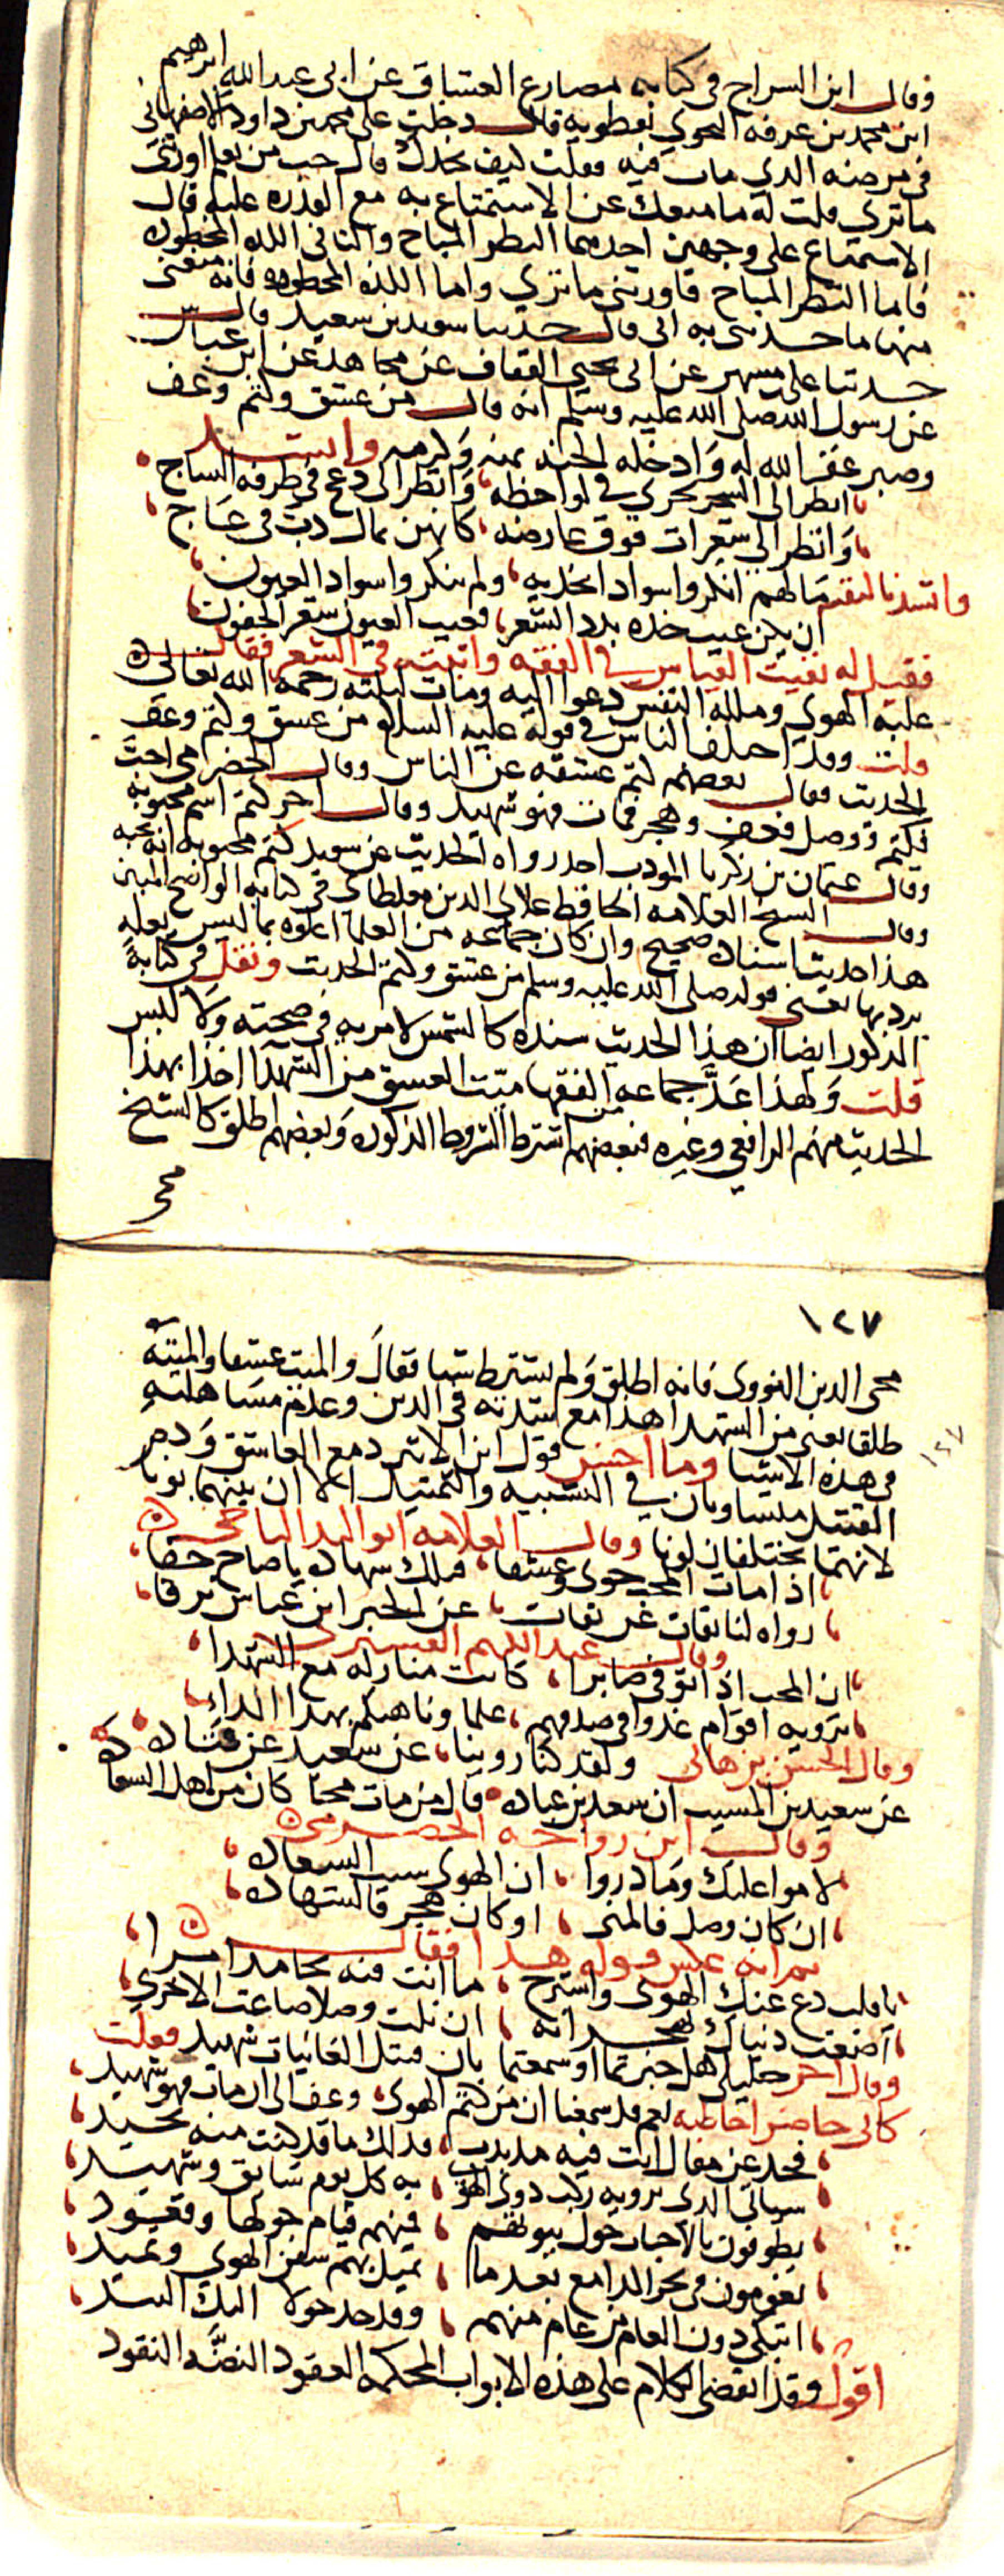 وقال ابن السراج في كتابه مصارع العشاق عن ابي عبد الله ابرهيم
ابن محمد بن عرفه النحوي نفطويه قال دخلت على محمد بن داود الاصفهاني
في مرضه الدي مات فيه فقلت كيف نجدك قال حب من تعلم اورثني
ما تري فقلت له ما منعك عن الاستمتاع به مع القدره عليه قال
الاستمتاع على وجهين احدهما النظر المباح والثاني اللذه المحظوره
فاما النظر المباح فاورثني ما تري واما اللذه المحظوره فانه منعني
منها ما حدثني به ابي قال حدثنا سويد بن سعيد قال
حدثنا علي بن مسهر عن ابي يحيي القتات عن مجاهد عن ابن عباس
عن رسول الله صلى الله عليه وسلم انه قال من عشق وكتم وعف
وصبر غفر الله له وادخله الجنه بمنه وكرمه وانشد
انظر الى السحر يجري في لواحظه وانظر الى دعج في طرفه الساج
وانظر الى شعرات فوق عارضه كانهن نمال دب في عاج
وانشدنا لنفسه ما لهم انكروا سوادا بخديه ولم ينكروا سواد العيون
ان يكن عيب خده بدد الشعر فعيب العيون شعر الجفون
فقيل له نفيت القياس في الفقه واثبته في الشعر فقال
غلبة الهوي وملكة النفس دعوا اليه ومات ليلته رحمه الله تعالى
قلت وقد اختلف الناس في قوله عليه السلام من عشق وكتم وعف
الحديث فقال بعضهم كتم عشقه عن الناس وقال الحضرامي احب
فكتم ووصل فعف وهجر فمات فهو شهيد وقال اخر كتم اسم محبوبه
وقال عثمان بن زكريا المودب احد رواه الحديث عن سويد كتم محبوبه انه يحبه
وقال الشيخ العلامه الحافظ علاي الدين مغلطاي في كتابه الواضح المبين
هذا حديث اسناده صحيح وان كان جماعه من العلما اعلوه بما ليس بعله
يرد بها يعني قوله صلى الله عليه وسلم من عشق وكتم الحديث ونقل في كتابه
المذكور ايضا ان هذا الحديث سنده كالشمس لا مريه في صحته ولا لبس
قلت ولهذا عد جماعه من الفقها ميت العشق من الشهدا اخذا بهذا
الحديث منهم الرافعي وغيره فبعضهم اشترط الشروط المذكوره وبعضهم اطلق كالشيخ
محي
١٢٧
محي الدين النووي فانه اطلق ولم يشترط شيا فقال والميت عشقا والميته
طلقا يعني من الشهدا هذا مع شدته في الدين وعدم مساهلته
في هذه الاشيا وما احسن قول ابن الاثير دمع العاشق ودم
القتيل متساويان في التشبيه والتمثيل الا ان بينهما بونا
لانهما يختلفان لونا وقال العلامه ابو الوليد الباجي
اذا مات المحب جوي وعشقا فتلك شهاده يا صاح حقا
رواه لنا ثقات عن ثقات عن الحبر ابن عباس ترقا
وقال عبد الكريم القشيري
ان المحب اذا توفي صابرا كانت منازله مع الشهدا
يرويه اقوام غدوا في صدقهم علما وناهيكم بهذا الداء
وقال الحسن بن هاني ولقد كنا روينا عن سعيد عن قتاده
عن سعيد بن المسيب ان سعد بن عباده قال من مات محبا كان من اهل السعاده
وقال ابن رواحه الحضرمي
لاموا عليك وما دروا ان الهوى سبب السعاده
ان كان وصل فالمني او كان هجر فالشهاده
ثم انه عكس قوله هذا فقال
يا قلب دع عنك الهوى واسترح ما انت فيه حامدا امرا
اضعت دنياك بهجرانه ان نلت وصلا ضاعت الاخري
وقال اخر خليلي هل خبرتما او سمعتما بان قتيل الغانيات شهيد فقلت
كاني حاضر اخاطبه نعم قد سمعنا ان من كتم الهوى وعف الى ان مات فهو شهيد
فحد عن مقال انت فيه مذبذب فذلك ما قد كنت منه تحيد
سياتي الذي يرويه ركب ذوي الهوى به كل يوم سائق وشهيد
يطوفون بالاحباب حول بيوتهم فمنهم قيام حولها وقعود
يعومون في بحر المدامع بعدما تميل بهم سفن الهوي وتميد
اتبكي دون العام من عام منهم وقد جد حولا اليك السيد
اقول وقد انقضى الكلام على هذه الابواب المحكمه العقود النضه النقود